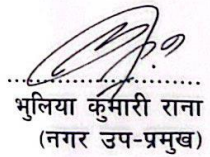 भुलिया कुमारी राना
(नगर उप-प्रमुख)